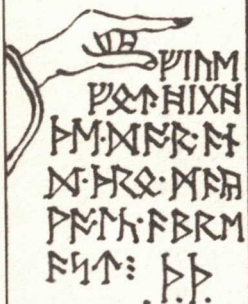 ᚠᛁᚢᛖ
ᚠᛟᛏ᛫ᚻᛁᚷᚻ
ᚦᛖ᛫ᛞᛳᚱ᛫ᚪᚾ
ᛞ᛫ᚦᚱᛟ᛫ᛗᚪᚣ
ᚹᚪᛚᛱ᛫ᚪᛒᚱᛖ
ᚪᛋᛏ⁝ ᛫ᚦᚦ᛫